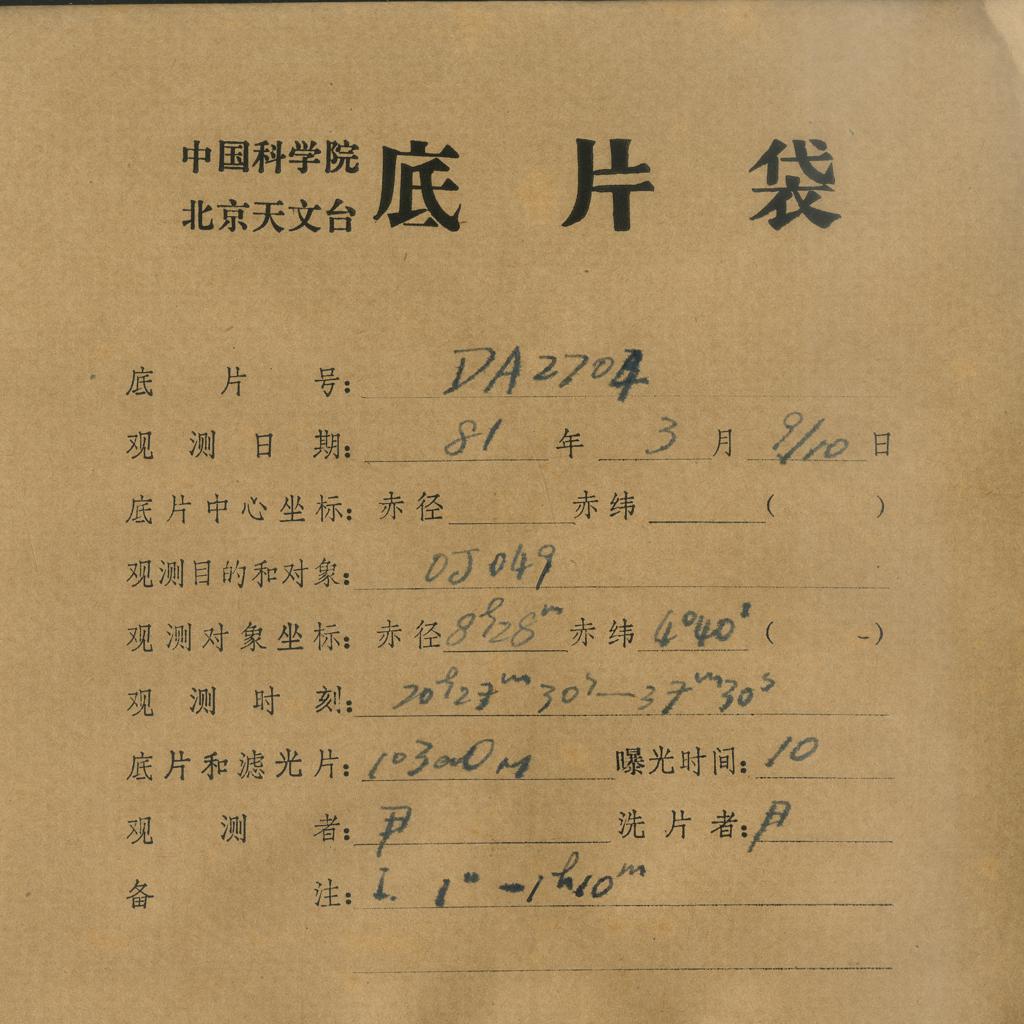 中国科学院
北京天文台
底片袋
底片号: DA2704
观测日期: 81年 3月 9/10日
底片中心坐标: 赤径 赤纬 ( )
观测目的和对象: OJ 049
观测对象坐标: 赤径 8h28m 赤纬 4°40′ ( -)
观测时刻: 20h27m30s—37m30s
底片和滤光片: 103aO 曝光时间: 10
观测者: 尹 洗片者: 尹
备注: I. 1" -1h10m